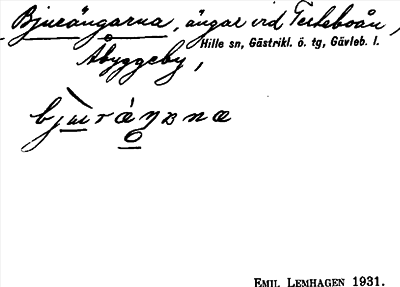 Bjurängarna, ängar vid Testeboån,
Hille sn, Gästrikl. ö. tg, Gävleb. l.
Åbyggeby,
EMIL LEMHAGEN 1931.